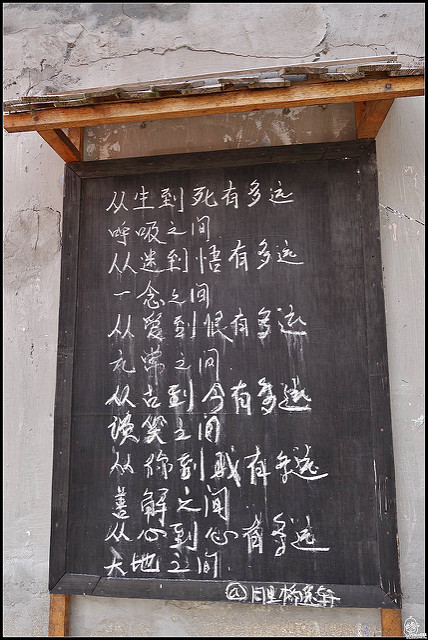 从生到死有多远
呼吸之间
从迷到悟有多远
一念之间
从爱到恨有多远
无常之间
从古到今有多远
谈笑之间
从你到我有多远
善解之间
从心到心有多远
天地之间
@